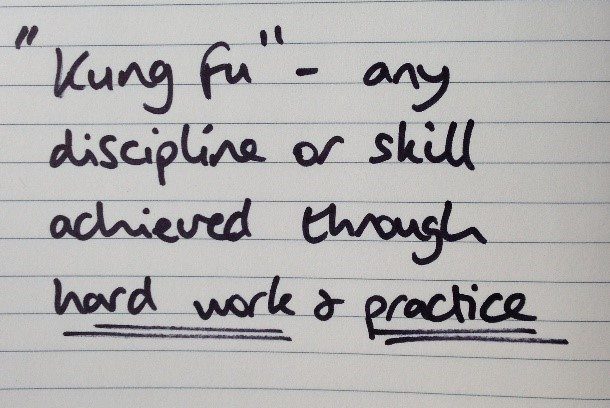 "Kung fu" - any
discipline or skill
achieved through
hard work & practice